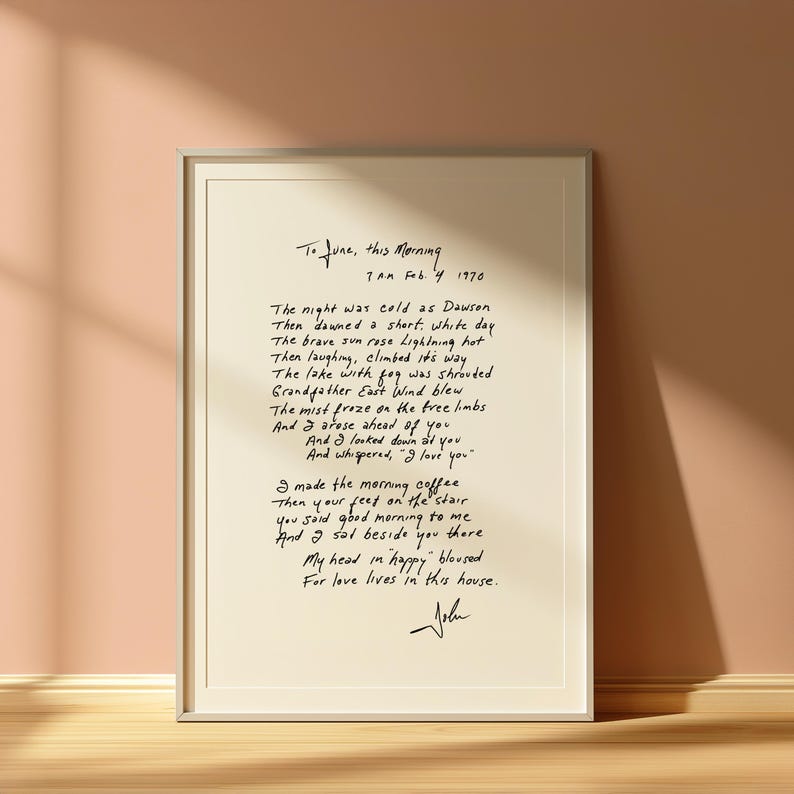 To June, this Morning
7 AM Feb. 4 1970
The night was cold as Dawson
Then dawned a short, white day
The brave sun rose Lightning hot
Then laughing, climbed it's way
The lake with fog was shrouded
Grandfather East Wind blew
The mist froze on the tree limbs
And I arose ahead of you
And I looked down at you
And whispered, "I love you"
I made the morning coffee
Then your feet on the stair
you said good morning to me
And I sat beside you there
My head in "happy" bloused
For love lives in this house.
John